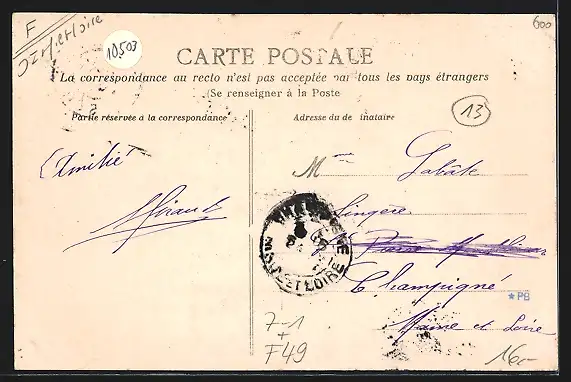 F
Ind et Loire
10503
600
CARTE POSTALE
La correspondance au recto n'est pas acceptée par tous les pays étrangers
(Se renseigner à la Poste
13
Partie réservée à la correspondance
Adresse du destinataire
Amitié
Mme Gabâte
Lingère
Champigné
*PB
Maine et Loire
ET LOIRE
7-1
+
F49
16-